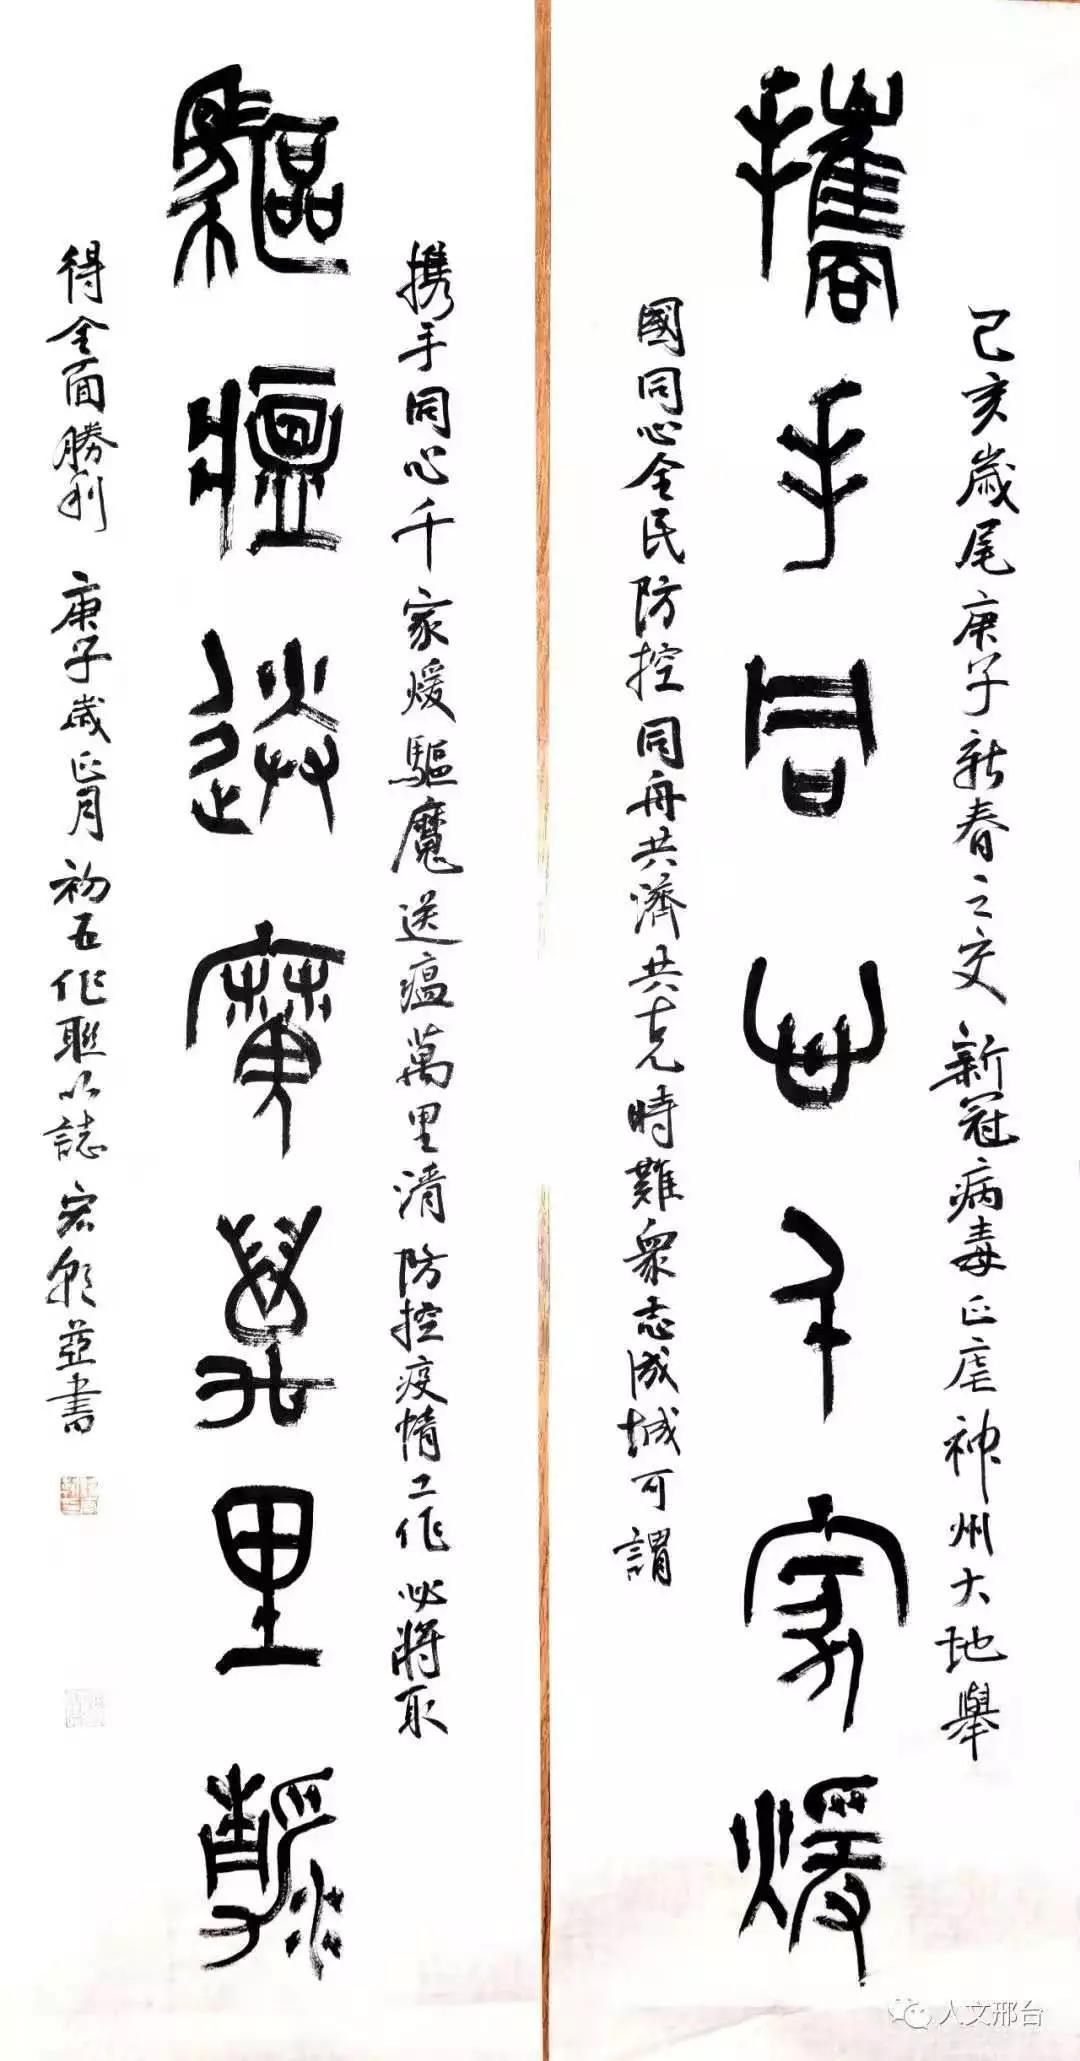 攜手同心千家煖
己亥歲尾庚子新春之交新冠病毒正虐神州大地舉
國同心全民防控同舟共濟共克時難眾志成城可謂
驅瘟送魔萬里瀞
携手同心千家煖驅魔送瘟萬里清防控疫情工作必將取
得全面勝利庚子歲正月初五作聯以誌宏並書
人文邢台